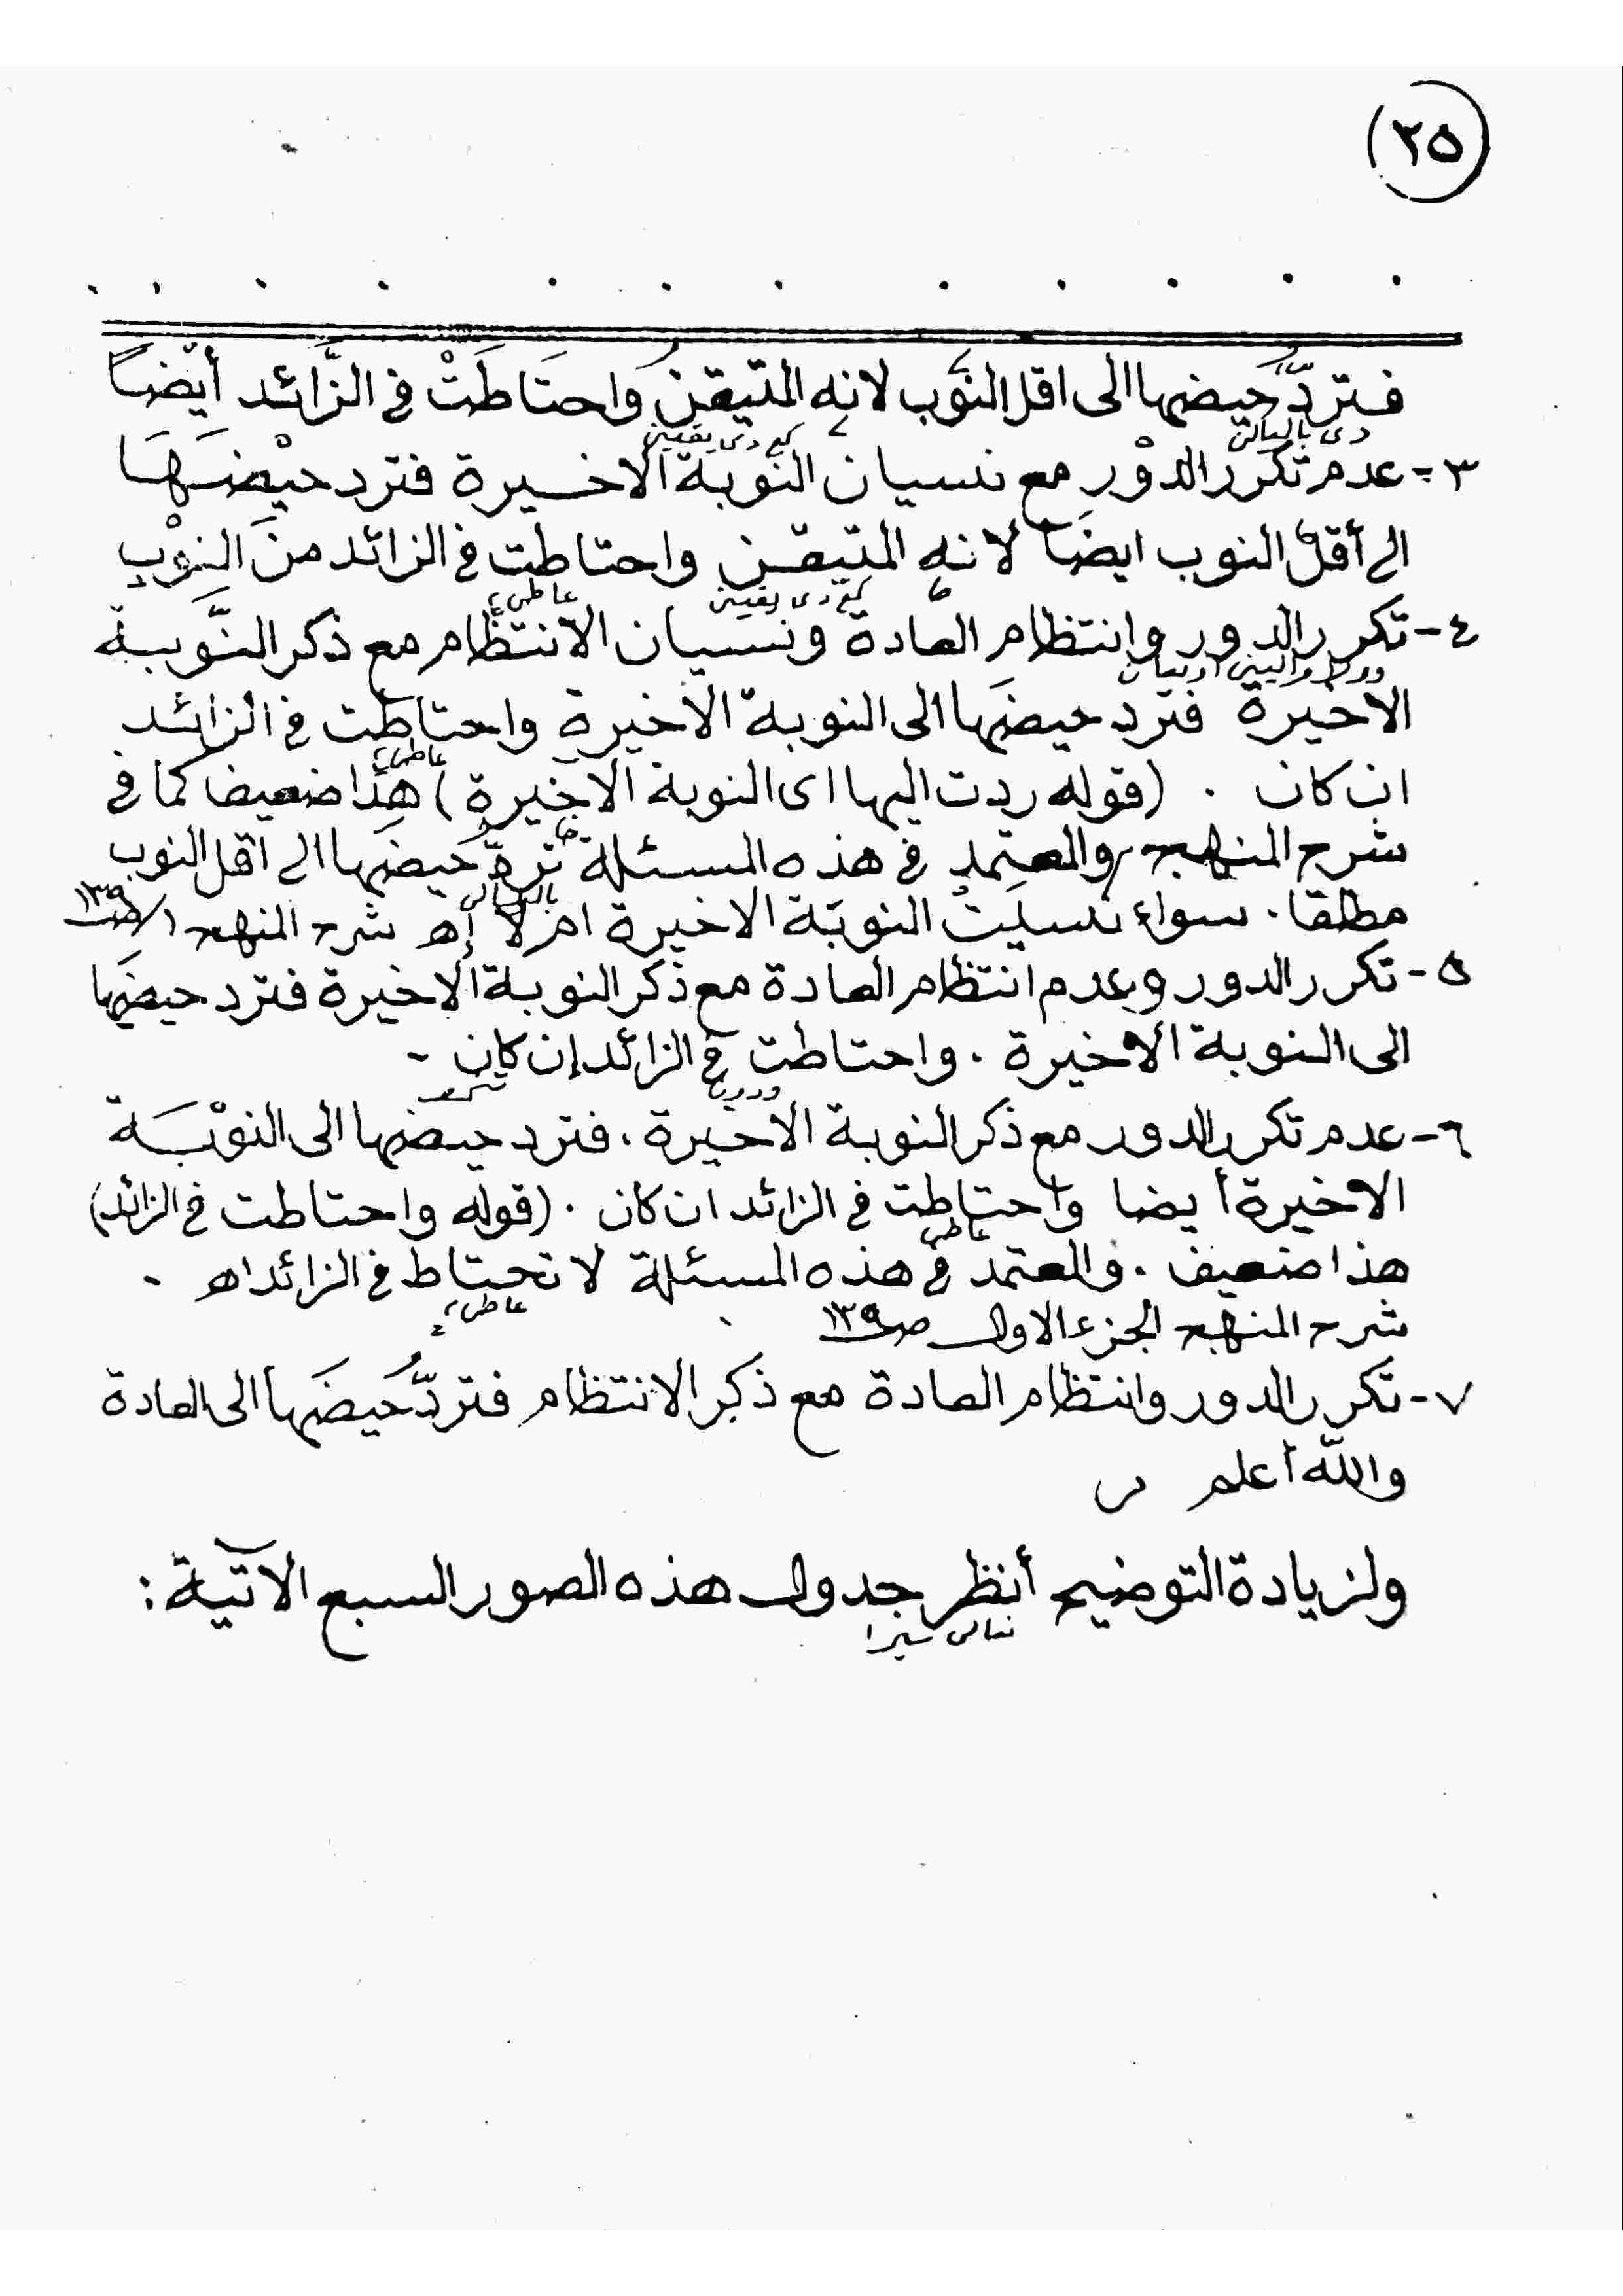 (٢٥)
فتردّ حَيضها الى اقل النَوَب لانه المتيقن وَاحتَاطَتْ في الزَّائد أيْضاً
٣- عدم تكرر الدوْر مع نسيان النوبَة الاخسيرة فترد حيْضَهَا
الى أقل النوب ايضَا لانه المتيقن واحتاطت في الزائد منَ النوَْبِ
عاطى٢
٤- تكرر الدور وانتظام العادة ونسيان الانتظام مع ذكر النَّوبة
الاخيرة فترد حيضَها الى النوبة الاخيرة واحتاطت في الزائد
عاطى٢
ان كان . (قوله ردت اليها اى النوبة الاخيرة) هذا ضعيفا كما في
شرح المنهج والمعتمد في هذه المسئلة تردّ حَيضَها الى اقل النوب
مطلقا. سواء نسيَتْ النوبَة الاخيرة ام لا إه شرح المنهج ١/ص١٣٩
٥- تكرر الدور وعدم انتظام العادة مع ذكر النوبة الاخيرة فترد حيضَها
الى النوبة الاخيرة . واحتاطت في الزائد إن كان -
٦- عدم تكرر الدور مع ذكر النوبة الاخيرة . فترد حيضها الى النوْبَة
الاخيرة أيضا واحتاطت في الزائد ان كان . (قوله واحتاطت في الزائد)
عاطى
هذا ضعيف . والمعتمد في هذه المسئلة لا تحتاط في الزائد اه -
عاطى٢
شرح المنهج الجزء الاول ص١٣٩
٧- تكرر الدور وانتظام العادة مع ذكر الانتظام فتردُّ حَيضَها الى العادة
والله أعلم
ولزيادة التوضيح أنظر جدول هذه الصور السبع الآتية :